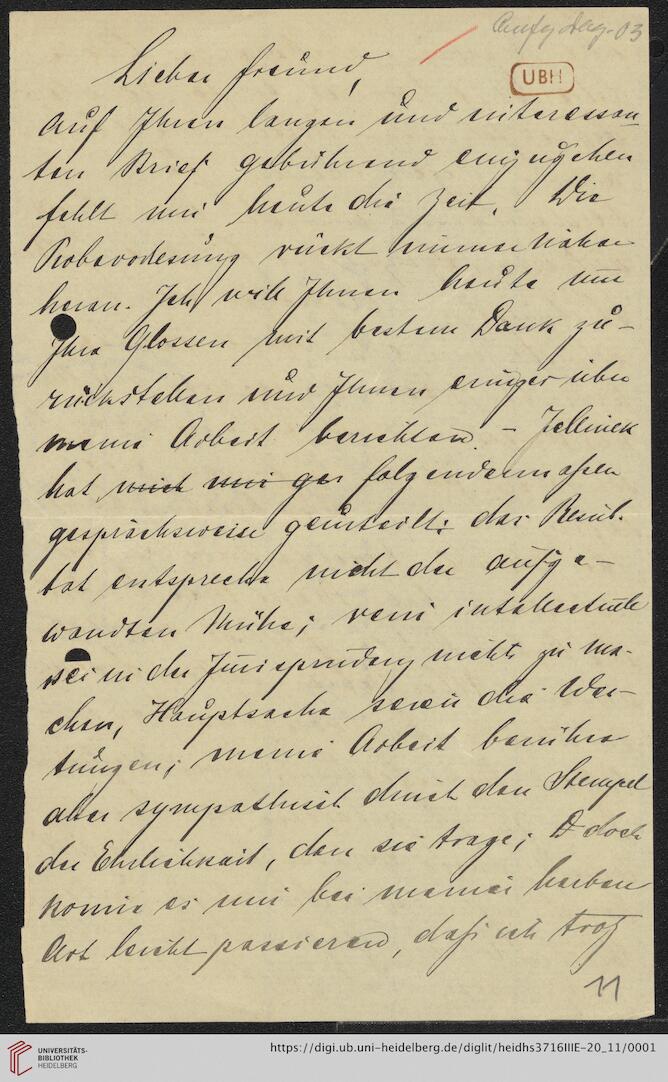 Anfg Dez. 03
UBH
Lieber Freund,
auf Ihren langen und interessan-
ten Brief gebührend einzugehen
fehlt mir heute die Zeit. Die
Probevorlesung rückt immer näher
heran. Ich will Ihnen heute nur
Ihre Glossen mit bestem Dank zu-
rückstellen und Ihnen einiges über
meine Arbeit berichten. – Jellinek
hat mich mir ger folgendermaßen
gesprächsweise geurteilt: das Resul-
tat entspreche nicht der aufge-
wandten Mühe; rein intellectuell
sei in der Jurisprudenz nichts zu ma-
chen, Hauptsache seien die Wer-
tungen; meine Arbeit berühre
aber sympathisch durch den Stempel
der Ehrlichkeit, den sie trage; doch
könne es mir bei meiner herben
Art leicht passieren, daß ich trotz
11
UNIVERSITÄTS-
BIBLIOTHEK
HEIDELBERG
https://digi.ub.uni-heidelberg.de/diglit/heidhs3716IIIE-20_11/0001